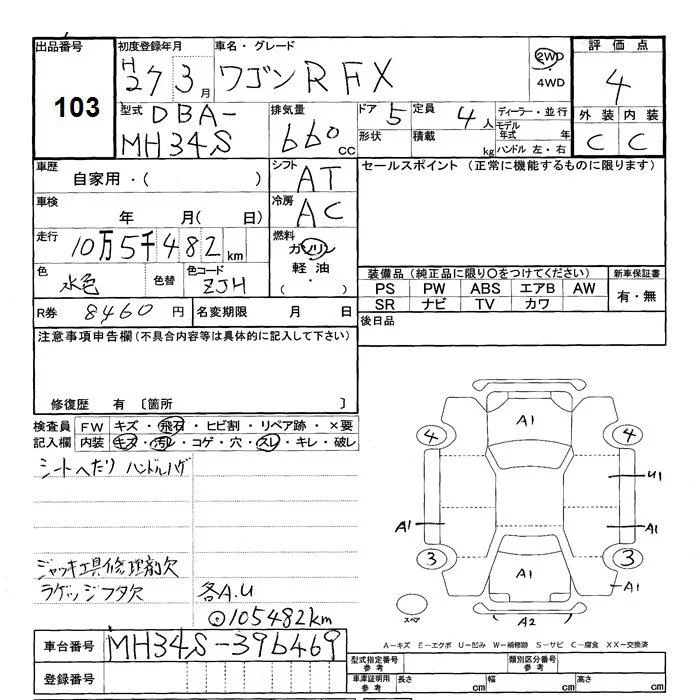 出品番号 初度登録年月 車名・グレード 評価点
103 H27 3月 ワゴンR FX 2WD 4WD 4
型式 DBA-MH34S 排気量 660 CC ドア 5 定員 4人 ディーラー・並行 外装 内装
形状 積載 kg モデル年式 年 ハンドル 左・右 C C
車歴 自家用・( ) シフト AT セールスポイント (正常に機能するものに限ります)
車検 年 月( 日) 冷房 AC
走行 10万5千482km 燃料 ガソリン 軽油 ( ・ )
色 水色 色替 色コード ZJH 装備品 (純正品に限り○をつけてください) 新車保証書
PS PW ABS エアB AW 有・無
SR ナビ TV カワ
R券 8460円 名変期限 月 日 後日品
注意事項申告欄 (不具合内容等は具体的に記入して下さい)
修復歴 有 〔箇所 〕
検査員 FW キズ・飛石・ヒビ割・リペア跡・×要
記入欄 内装 キズ・汚レ・コゲ・穴・スレ・キレ・破レ
シートへたり ハンドルハゲ
ジャッキ工具修理剤欠
ラゲッジフタ欠 各A.U
⊙105482km
A1
4 4
U1
A1 A1
3 3
A1 A1
スペア A2
A-キズ E-エクボ U-凹み W-補修跡 S-サビ C-腐食 XX-交換済
車台番号 MH34S-396469 型式指定番号 参考 類別区分番号 参考
登録番号 車庫証明用 参考 長さ cm 幅 cm 高さ cm